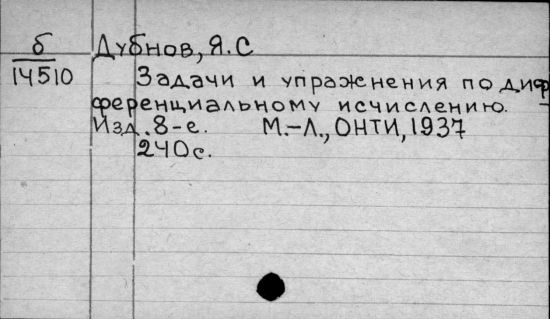 б Дубнов, Я.С
14510 Задачи и упражнения по диф-
ференциальному исчислению. -
Изд. 8-е. М.-Л., ОНТИ, 1937
240с.